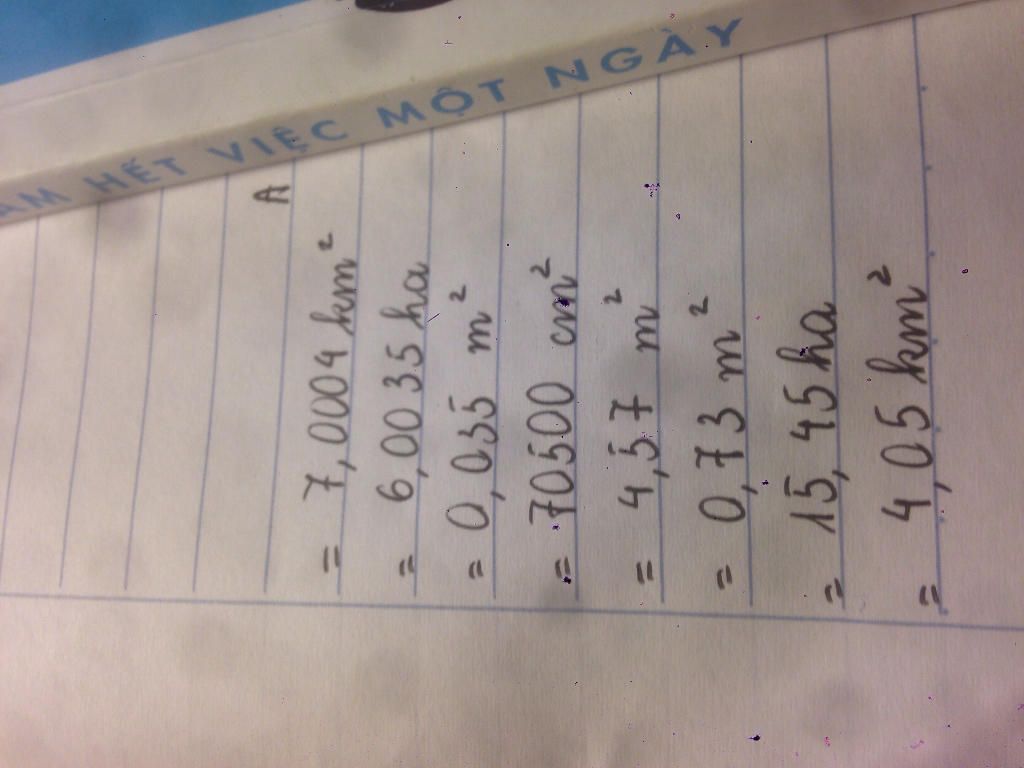 ÀM HẾT VIỆC MỘT NGÀY
A
= 7,0004 km²
= 6,0035 ha
= 0,035 m²
= 70500 cm²
= 4,57 m²
= 0,73 m²
= 15,45 ha
= 4,05 km²